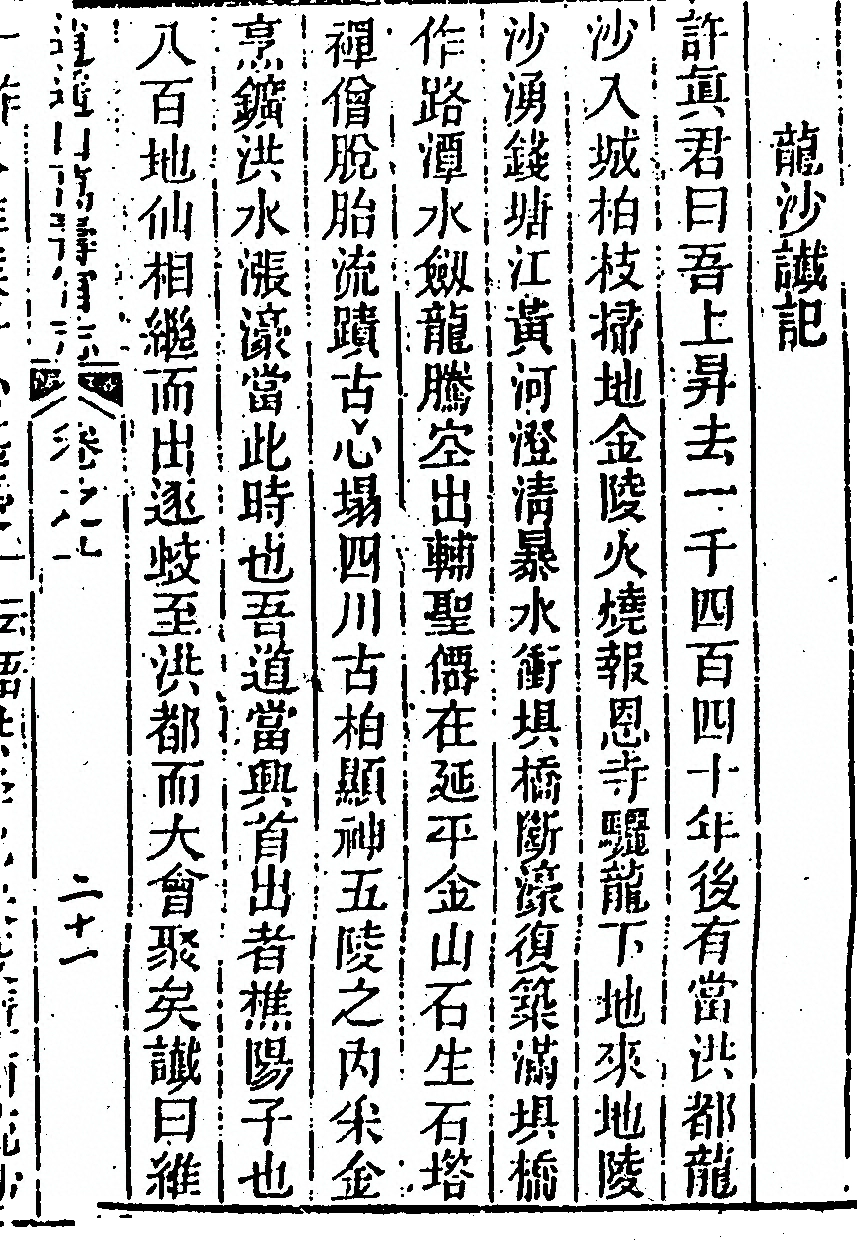 龍沙讖記
許眞君曰吾上昇去一千四百四十年後有當洪都龍
沙入城柏枝掃地金陵火燒報恩寺驪龍下地來地陵
沙湧錢塘江黃河澄清暴水衝埧橋斷濠復築滿埧橋
作路潭水劔龍騰空出輔聖僊在延平金山石生石塔
禪僧脫胎流蹟古心塌四川古柏顯神五陵之內采金
烹鑛洪水漲濠當此時也吾道當興首出者樵陽子也
八百地仙相繼而出逐蛟至洪都而大會聚矣讖曰維
逍遙山萬壽宮志 卷之 二十一